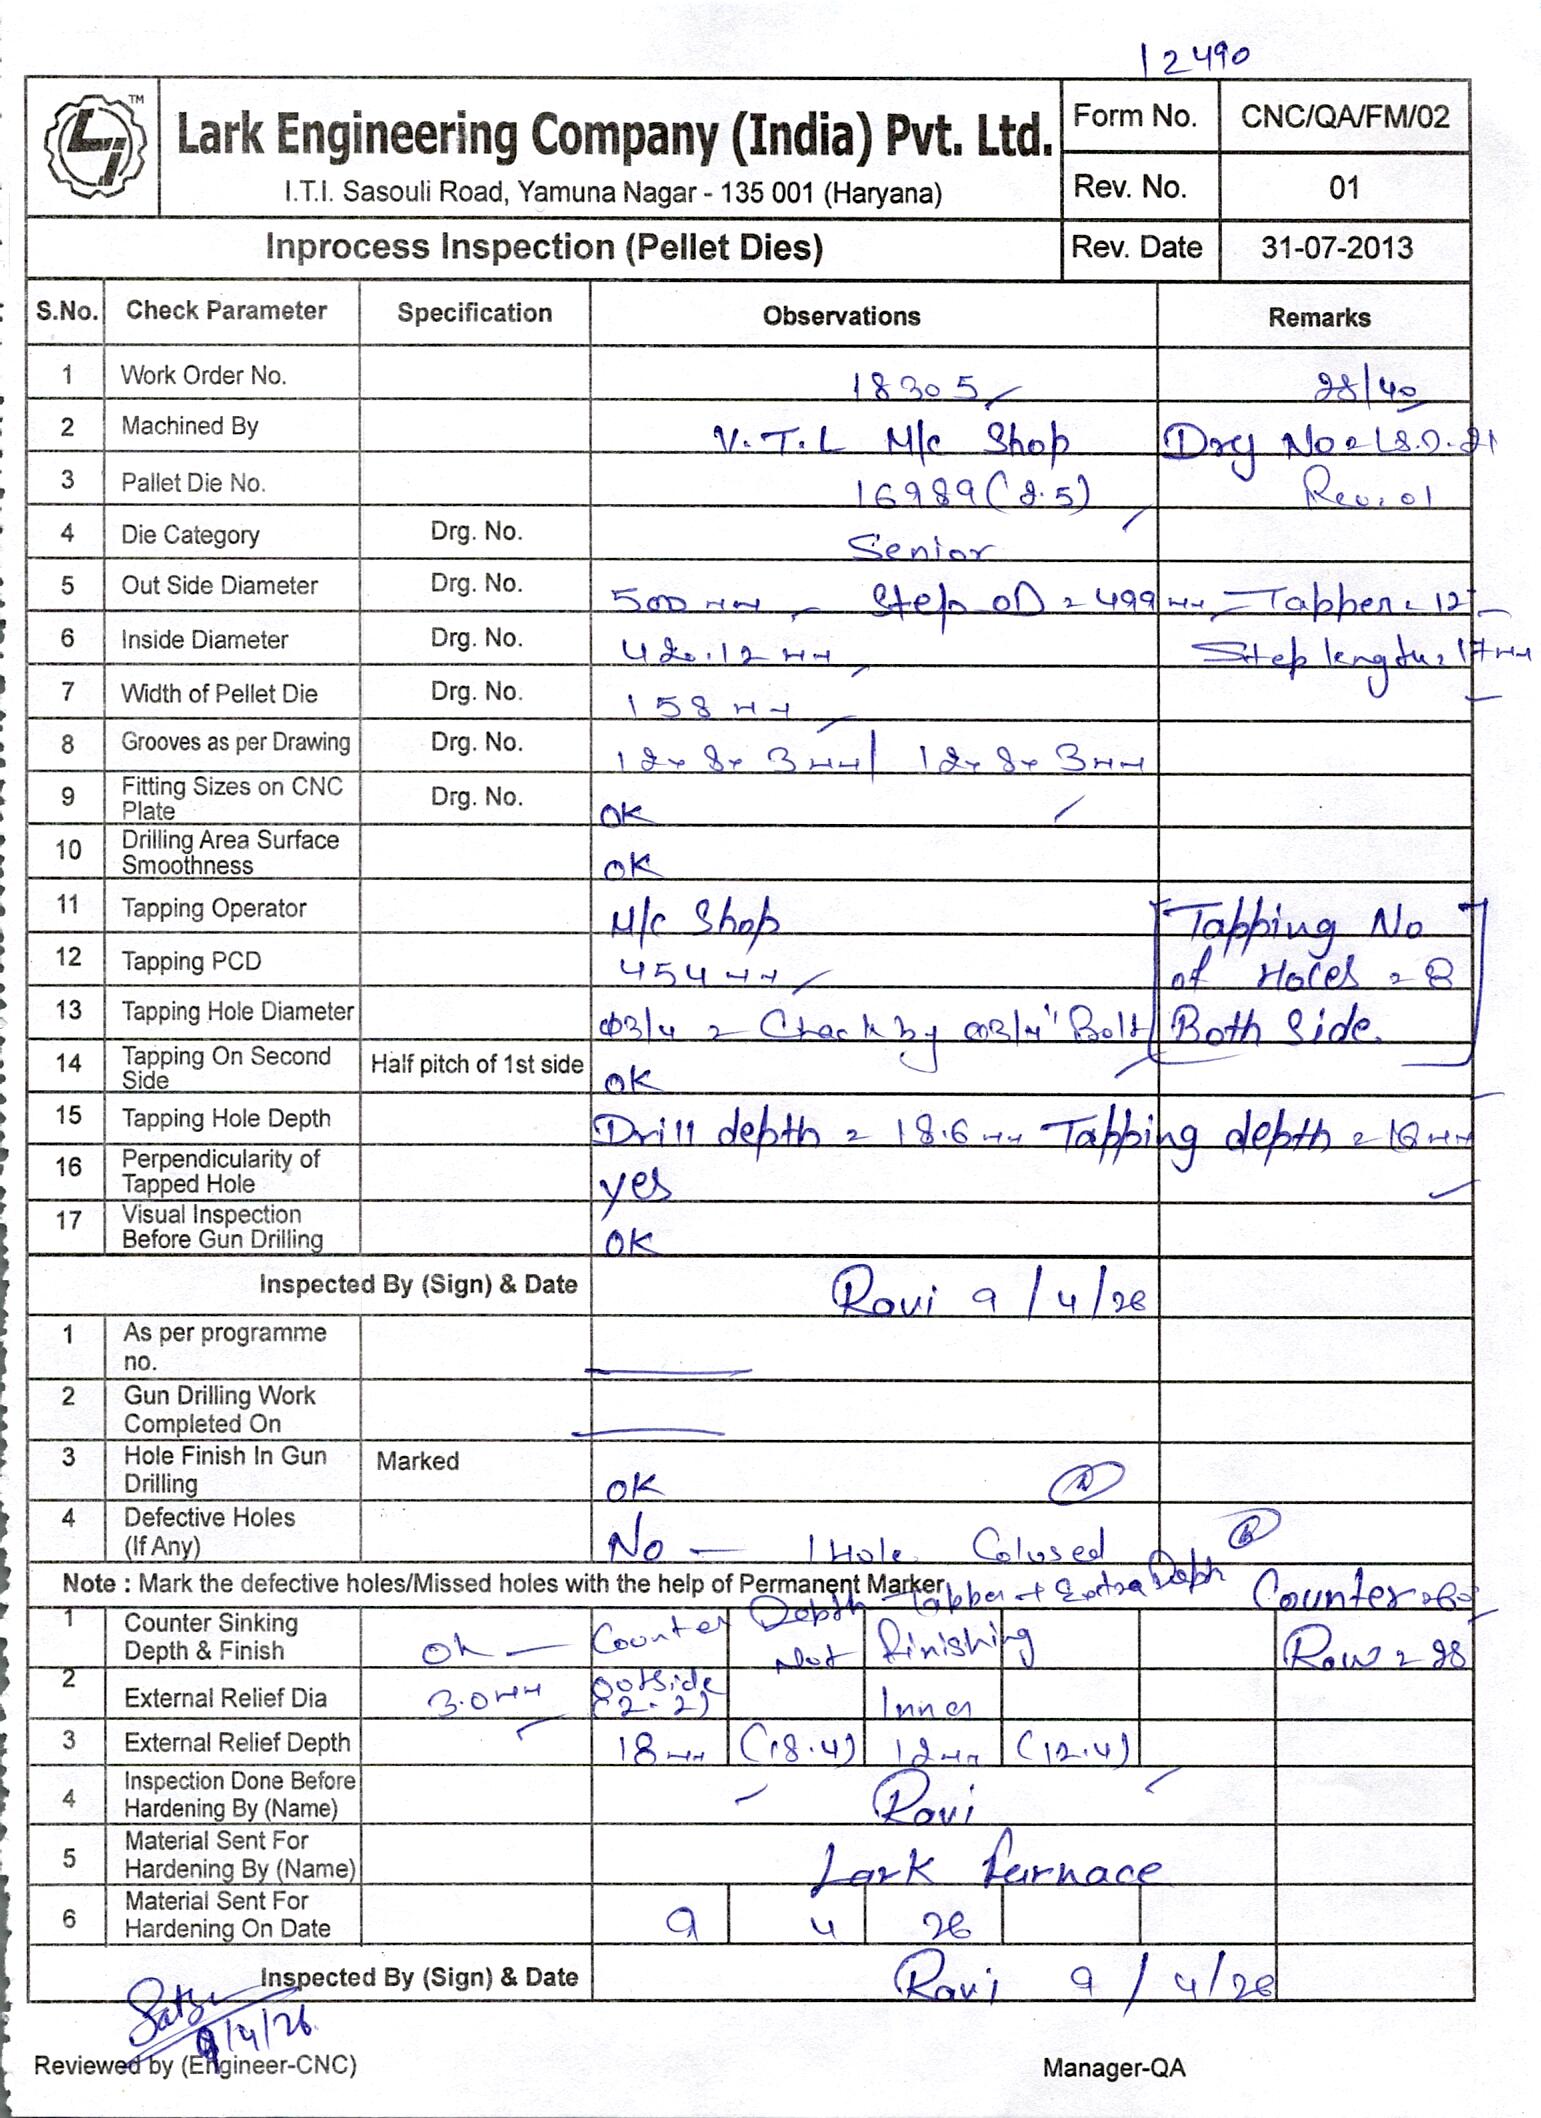 12490
TM
Lark Engineering Company (India) Pvt. Ltd.
I.T.I. Sasouli Road, Yamuna Nagar - 135 001 (Haryana)
Form No. CNC/QA/FM/02
Rev. No. 01
Inprocess Inspection (Pellet Dies) Rev. Date 31-07-2013
S.No. Check Parameter Specification Observations Remarks
1 Work Order No. 18305 28/40
2 Machined By V.T.L M/c Shop Drg No
3 Pallet Die No. 16989 (2.5) Rev. 01
4 Die Category Drg. No. Senior
5 Out Side Diameter Drg. No. 500 mm Step OD = 499 mm Tapper = 12
6 Inside Diameter Drg. No. 420.12 mm Step length = 17 mm
7 Width of Pellet Die Drg. No. 158 mm
8 Grooves as per Drawing Drg. No. 12x8x3mm / 12x8x3mm
9 Fitting Sizes on CNC Plate Drg. No. OK
10 Drilling Area Surface Smoothness OK
11 Tapping Operator M/c Shop Tapping No
12 Tapping PCD 454 mm of Holes = 8
13 Tapping Hole Diameter Φ3/4 = Check by Φ3/4" Bolt Both Side.
14 Tapping On Second Side Half pitch of 1st side OK
15 Tapping Hole Depth Drill depth = 18.6 mm Tapping depth = 16 mm
16 Perpendicularity of Tapped Hole yes
17 Visual Inspection Before Gun Drilling OK
Inspected By (Sign) & Date Ravi 9/4/26
1 As per programme no.
2 Gun Drilling Work Completed On
3 Hole Finish In Gun Drilling Marked OK
4 Defective Holes (If Any) No — 1 Hole Colused
Note : Mark the defective holes/Missed holes with the help of Permanent Marker
Tapper + Extra Depth Counter
1 Counter Sinking Depth & Finish OK — Counter Depth Not Finishing Row = 28
2 External Relief Dia 3.0mm outside Inner
3 External Relief Depth 18mm (18.4) 12mm (12.4)
4 Inspection Done Before Hardening By (Name) Ravi
5 Material Sent For Hardening By (Name) Lark furnace
6 Material Sent For Hardening On Date 9 4 26
Inspected By (Sign) & Date Ravi 9/4/26
9/4/26
Reviewed by (Engineer-CNC) Manager-QA